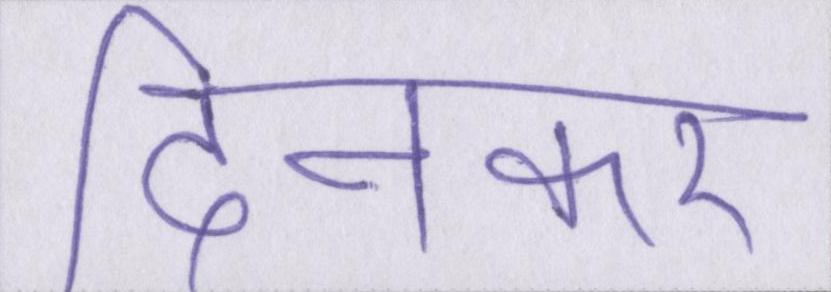 दिनकर